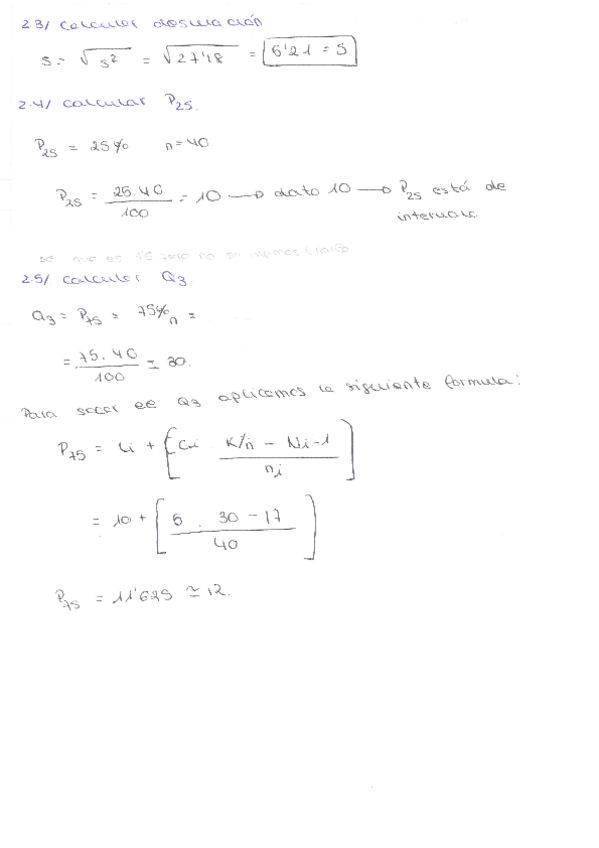 2.3/ Calcular desviación
S = √s² = √27'18 = 5'21 = S
2.4/ calcular P25.
P25 = 25% n=40
P25 = 25.40/100 = 10 → dato 10 → P25 está de
intervalo
2.5/ calcular Q3.
Q3 = P75 = 75% n =
= 75.40/100 = 30.
Para sacar el Q3 aplicamos la siguiente formula:
P75 = Li + [Ci . K/n - Ni-1 / ni]
= 10 + [5 . 30 - 17 / 40]
P75 = 11'625 ≃ 12.